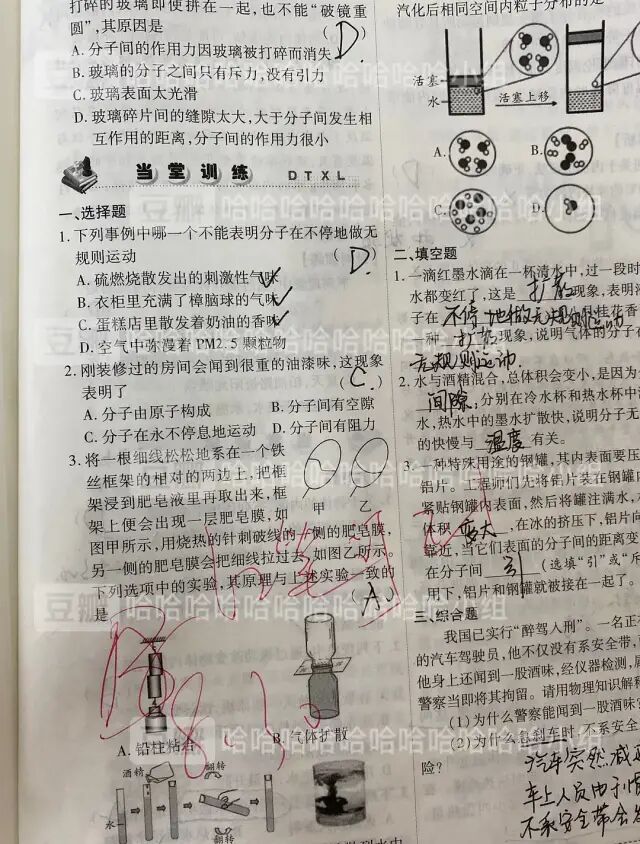 打碎的玻璃即使拼在一起，也不能“破镜重
圆”，其原因是 ( D )
A. 分子间的作用力因玻璃被打碎而消失
B. 玻璃的分子之间只有斥力，没有引力
C. 玻璃表面太光滑
D. 玻璃碎片间的缝隙太大，大于分子间发生相
互作用的距离，分子间的作用力很小
当堂训练 DTXL
一、选择题
1. 下列事例中哪一个不能表明分子在不停地做无
规则运动 ( D. )
A. 硫燃烧散发出的刺激性气味
B. 衣柜里充满了樟脑球的气味
C. 蛋糕店里散发着奶油的香味
D. 空气中弥漫着 PM2.5 颗粒物
2. 刚装修过的房间会闻到很重的油漆味，这现象
表明了 ( C. )
A. 分子由原子构成 B. 分子间有空隙
C. 分子在永不停息地运动 D. 分子间有阻力
3. 将一根细线松松地系在一个铁
丝框架的相对的两边上，把框
架浸到肥皂液里再取出来，框
架上便会出现一层肥皂膜，如
甲 乙
图甲所示，用烧热的针刺破线的一侧的肥皂膜，
另一侧的肥皂膜会把细线拉过去，如图乙所示。
下列选项中的实验，其原理与上述实验一致的
是 ( A. )
A. 铅柱粘结 B. 气体扩散
酒精 翻转
水
翻转
汽化后相同空间内粒子分布的是
活塞
水
活塞上移
A. B.
C. D.
二、填空题
1. 一滴红墨水滴在一杯清水中，过一段时
水都变红了，这是 扩散 现象，表明液
子在 不停地做无规则运动 桂花香
一种 扩散 现象，说明气体的分子在
无规则运动.
2. 水与酒精混合，总体积会变小，是因为分
间隙；分别在冷水杯和热水杯中滴
水，热水中的墨水扩散快，说明分子无
的快慢与 温度 有关。
3. 一种特殊用途的钢罐，其内表面要压
铝片。工程师们先将铝片装在钢罐内
紧贴钢罐内表面，然后将罐注满水，
体积 变大，在冰的挤压下，铝片向
靠近，当它们表面的分子间的距离变
在分子间 引 (选填“引”或“斥
用下，铝片和钢罐就被接在一起了。
三、综合题
我国已实行“醉驾入刑”。一名正在
的汽车驾驶员，他不仅没有系安全带，
他身上还闻到一股酒味，经仪器检测，属
警察当即将其拘留。请用物理知识解释
(1)为什么警察能闻到一股酒味
(2)为什么急刹车时，不系安全
险？
汽车突然减速
车上人员由于惯
不系安全带会
8.10
豆瓣 哈哈哈哈哈哈哈小组